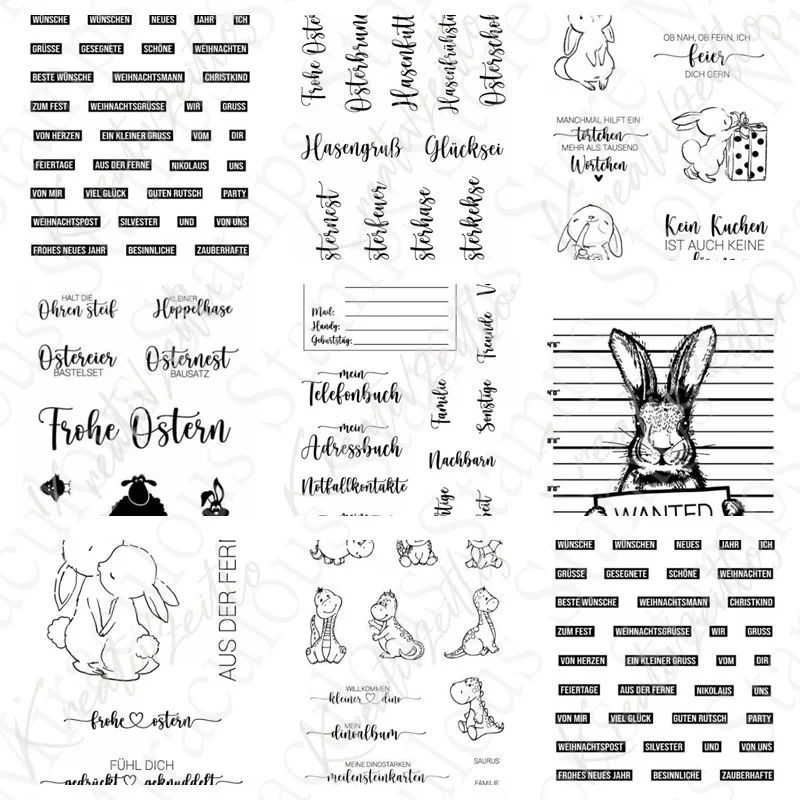 WÜNSCHE WÜNSCHEN NEUES JAHR ICH
GRÜSSE GESEGNETE SCHÖNE WEIHNACHTEN
BESTE WÜNSCHE WEIHNACHTSMANN CHRISTKIND
ZUM FEST WEIHNACHTSGRÜSSE WIR GRUSS
VON HERZEN EIN KLEINER GRUSS VOM DIR
FEIERTAGE AUS DER FERNE NIKOLAUS UNS
VON MIR VIEL GLÜCK GUTEN RUTSCH PARTY
WEIHNACHTSPOST SILVESTER UND VON UNS
FROHES NEUES JAHR BESINNLICHE ZAUBERHAFTE
Frohe Oste
Osterbrun
Hasenfutt
Hasenfrühstü
Osterschok
Hasengruß Glücksei
sternest
sterfeuer
sterhase
sterkekse
OB NAH, OB FERN, ICH
feier
DICH GERN
MANCHMAL HILFT EIN
törtchen
MEHR ALS TAUSEND
Wörtchen
Kein Kuchen
IST AUCH KEINE
HALT DIE
Ohren steif
KLEINER
Hoppelhase
Ostereier
BASTELSET
Osternest
BAUSATZ
Frohe Ostern
Mail:
Handy:
Geburtstag:
mein
Telefonbuch
mein
Adressbuch
Notfallkontakte
Familie
Freunde
Sonstige
Nachbarn
WANTED
AUS DER FERI
frohe ostern
FÜHL DICH
gedrückt geknuddelt
WILLKOMMEN
kleiner dino
MEIN
dinoalbum
MEINE DINOSTARKEN
meilensteinkarten
SAURUS
FAMILIE
WÜNSCHE WÜNSCHEN NEUES JAHR ICH
GRÜSSE GESEGNETE SCHÖNE WEIHNACHTEN
BESTE WÜNSCHE WEIHNACHTSMANN CHRISTKIND
ZUM FEST WEIHNACHTSGRÜSSE WIR GRUSS
VON HERZEN EIN KLEINER GRUSS VOM DIR
FEIERTAGE AUS DER FERNE NIKOLAUS UNS
VON MIR VIEL GLÜCK GUTEN RUTSCH PARTY
WEIHNACHTSPOST SILVESTER UND VON UNS
FROHES NEUES JAHR BESINNLICHE ZAUBERHAFTE